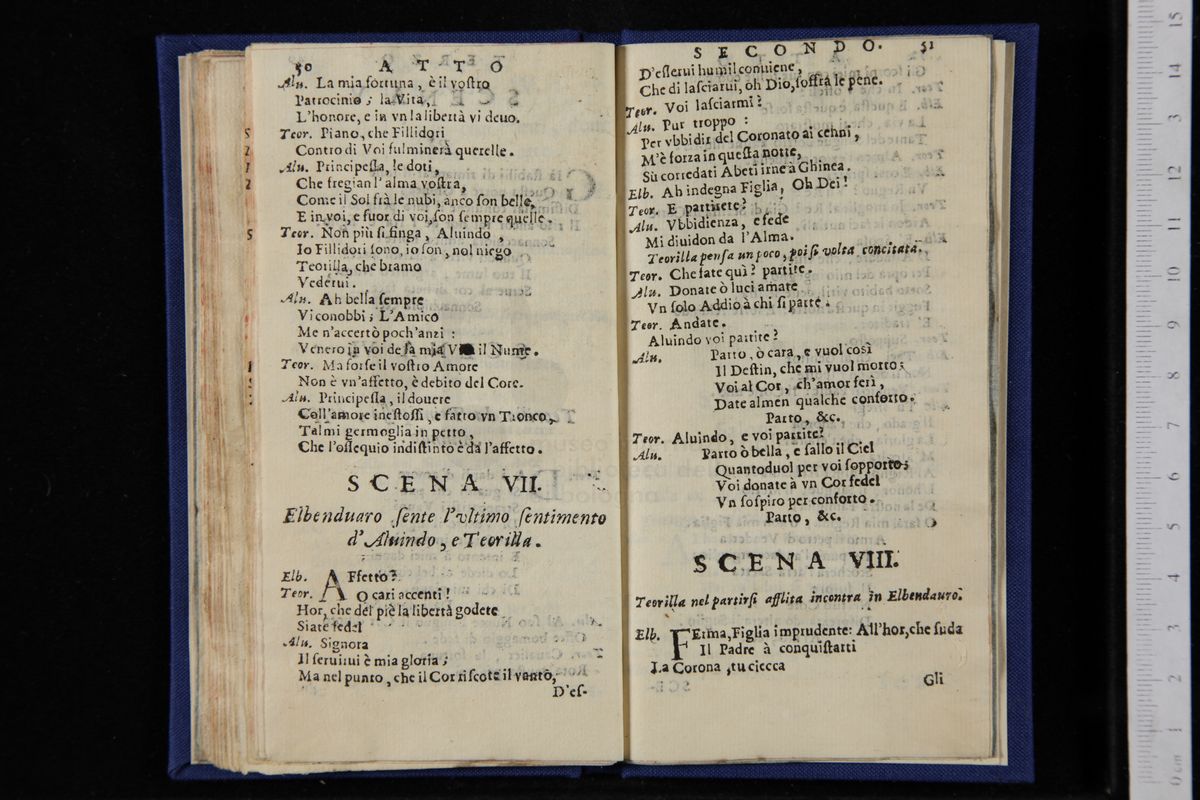 50 ATTO
Alu. La mia fortuna, è il vostro
Patrocinio; la Vita,
L'honore, e in vn la libertà vi deuo.
Teor. Piano, che Fillidori
Contro di Voi fulminerà querelle.
Alu. Principessa, le doti,
Che fregian l'alma vostra,
Come il Sol frà le nubi, anco son belle,
E in voi, e fuor di voi, son sempre quelle.
Teor. Non più si finga, Aluindo,
Io Fillidori sono, io son, nol niego
Teorilla, che bramo
Vederui.
Alu. Ah bella sempre
Vi conobbi; L'Amico
Me n'accertò poch'anzi:
Venero in voi de la mia il Nume.
Teor. Ma forse il vostro Amore
Non è vn'affetto, è debito del Core.
Alu. Principessa, il douere
Coll'amore inestossi, e fatto vn Tronco,
Tal mi germoglia in petto,
Che l'ossequio indistinto è da l'affetto.
SCENA VII.
Elbenduaro sente l'vltimo sentimento
d'Aluindo, e Teorilla.
Elb. AFfetto?
Teor. O cari accenti!
Hor, che del piè la libertà godete
Siate fedel
Alu. Signora
Il seruirui è mia gloria;
Ma nel punto, che il Cor riscote il vanto,
D'es-
SECONDO. 51
D'esserui humil conuiene,
Che di lasciarui, oh Dio, soffrà le pene.
Teor. Voi lasciarmi?
Alu. Pur troppo:
Per vbbidir del Coronato ai cenni,
M'è forza in questa notte,
Sù corredati Abeti irne à Ghinea.
Elb. Ah indegna Figlia, Oh Dei!
Teor. E partirete?
Alu. Vbbidienza, e fede
Mi diuidon da l'Alma.
Teorilla pensa un poco, poi si volta concitata.
Teor. Che fate quì? partite.
Alu. Donate ò luci amate
Vn solo Addio à chi si parte.
Teor. Andate.
Aluindo voi partite?
Alu. Parto, ò cara, e vuol così
Il Destin, che mi vuol morto;
Voi al Cor, ch'amor ferì,
Date almen qualche conforto.
Parto, &c.
Teor. Aluindo, e voi partite?
Alu. Parto ò bella, e sallo il Ciel
Quanto duol per voi sopporto;
Voi donate à vn Cor fedel
Vn sospiro per conforto.
Parto, &c.
SCENA VIII.
Teorilla nel partirsi afflita incontra in Elbendauro.
Elb. FErma, Figlia imprudente: All'hor, che suda
Il Padre à conquistarti
La Corona, tu ciecca
Gli